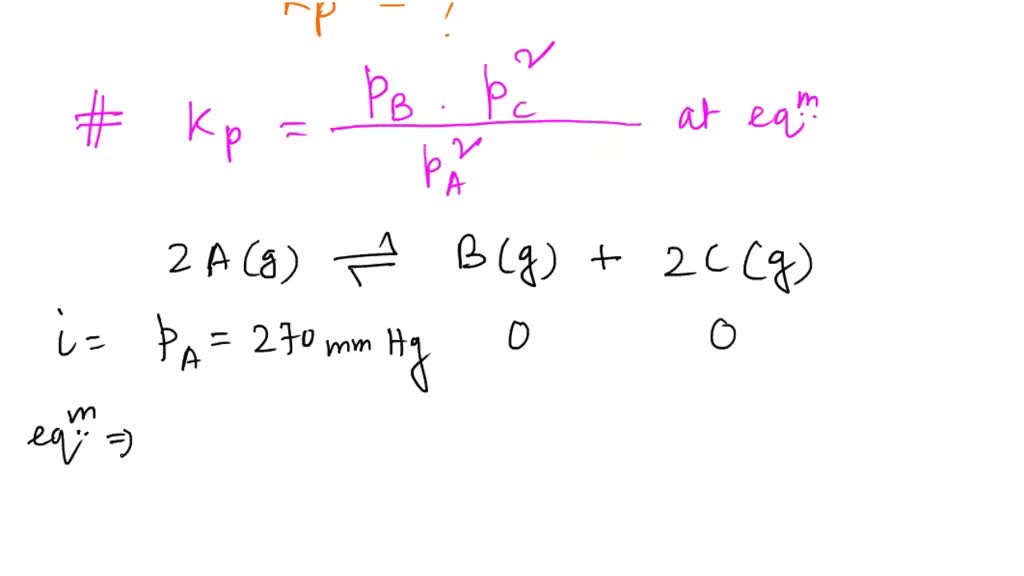 Kp = ?
# Kp = pB . pC² / pA² at eqᵐ
2A(g) ⇌ B(g) + 2C(g)
i = pA = 270 mm Hg 0 0
eqᵐ ⇒